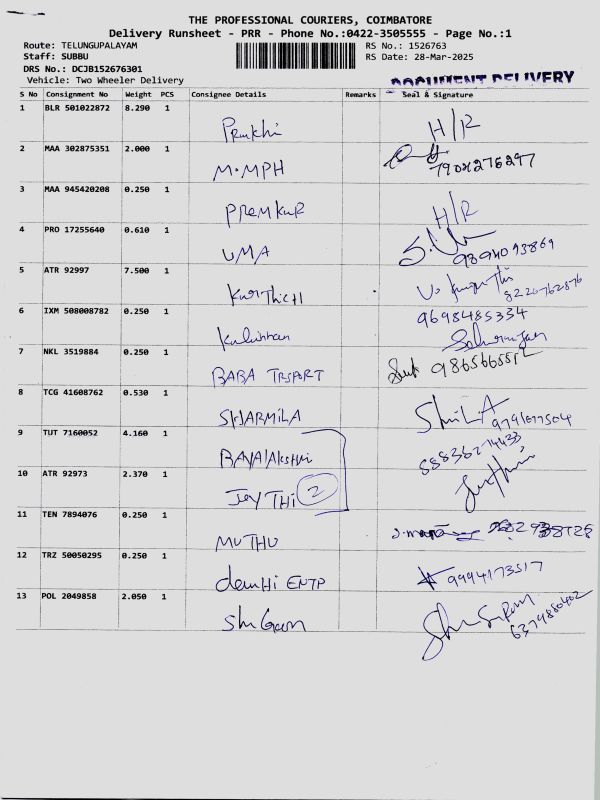 THE PROFESSIONAL COURIERS, COIMBATORE
Delivery Runsheet - PRR - Phone No.:0422-3505555 - Page No.:1
Route: TELUNGUPALAYAM RS No.: 1526763
Staff: SUBBU RS Date: 28-Mar-2025
DRS No.: DCJB152676301
Vehicle: Two Wheeler Delivery
DOCUMENT DELIVERY
S No Consignment No Weight PCS Consignee Details Remarks Seal & Signature
1 BLR 501022872 8.290 1 H/R
2 MAA 302875351 2.000 1 M.MPH 7904276297
3 MAA 945420208 0.250 1 PREMKUR H/R
4 PRO 17255640 0.610 1 UMA 9894093869
5 ATR 92997 7.500 1 KARTHICH 8220762876
6 IXM 508008782 0.250 1 9698485334
7 NKL 3519884 0.250 1 BABA TRSPORT
8 TCG 41608762 0.530 1 SHARMILA
9 TUT 7160052 4.160 1 88836274433
10 ATR 92973 2.370 1 JEYTHI 2
11 TEN 7894076 0.250 1 MUTHU
12 TRZ 50050295 0.250 1 ENTP 9994173517
13 POL 2049858 2.050 1 6374880402